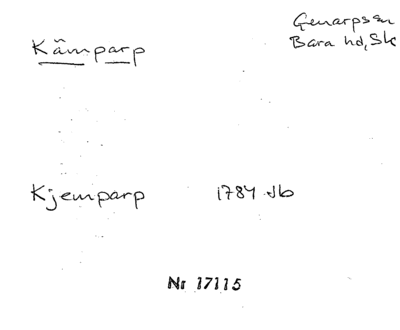 Kämparp
Genarps sn
Bara hd, Sk
Kjemparp 1784 Jb
Nr 17115